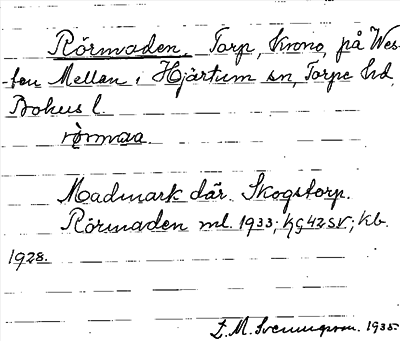 Rörmaden, Torp, Krono, på Wes-
ten Mellan i Hjärtum sn, Torpe hd,
Bohus l.
rörmaa.
Madmark där. Skogstorp.
Rörmaden ml. 1933; KG42SV; Kb.
1928.
E. M. Svenungsson. 1935